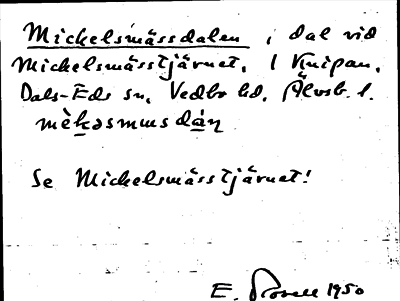 Mickelsmässdalen, dal vid
Mickelsmässtjärnet, i Knipan,
Dals-Eds sn, Vedbo hd, Älvsb. l.
mèkəsmusdán
Se Mickelsmässtjärnet!
E. 1950